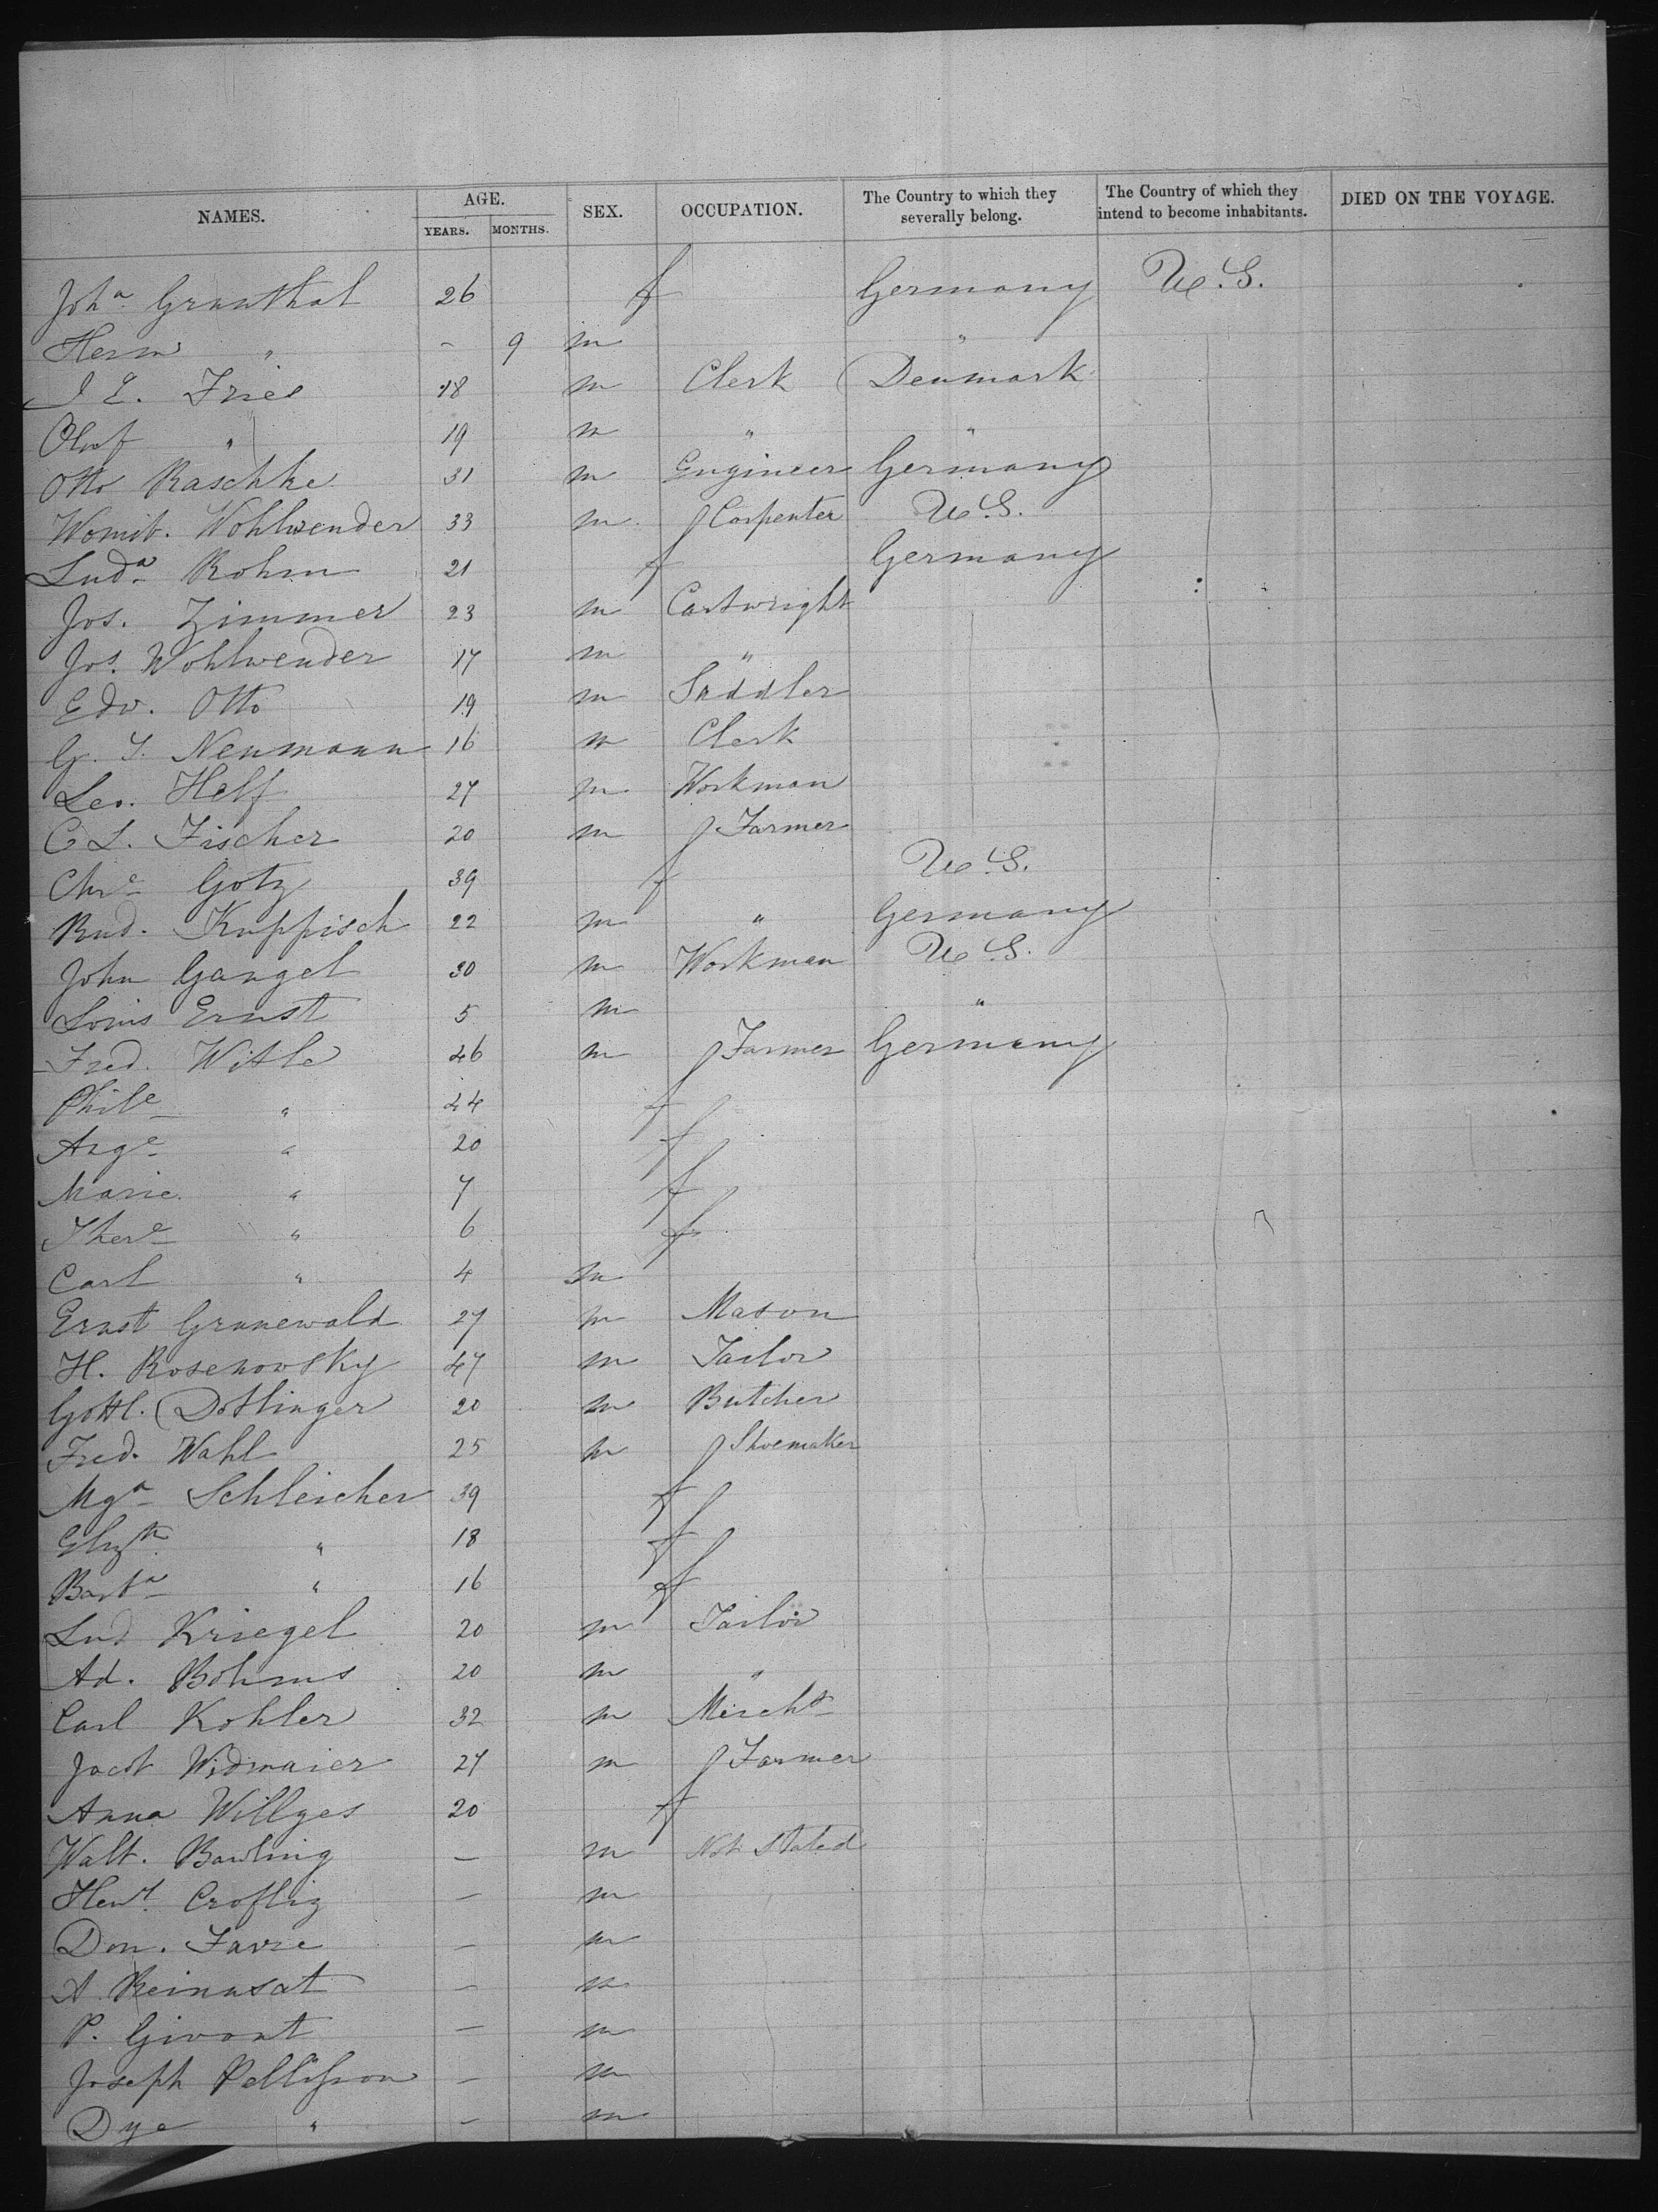 NAMES. AGE. SEX. OCCUPATION. The Country to which they severally belong. The Country of which they intend to become inhabitants. DIED ON THE VOYAGE.
YEARS. MONTHS.
Joha Grunthal 26 f Germany U.S.
Herm " - 9 m "
J E. Fries 18 m Clerk Denmark
Oluf " 19 m " "
Otto Raschke 31 m Engineer Germany
Wohlwender 33 m Carpenter U.S.
Luda Rohm 21 f Germany
Jos. Zimmer 23 m Cartwright
Jos. Wohlwender 17 m "
Edw. Otto 19 m Saddler
G. F. Neumann 16 m Clerk
Leo. Helf 27 m Workman
C L. Fischer 20 m Farmer
Chre Gotz 39 f U.S.
Rud. Kuppisch 22 m " Germany
John Gangel 30 m Workman U.S.
Louis Ernst 5 m "
Fred. Witle 46 m Farmer Germany
Phile " 44 f
Auge " 20 f
Marie " 7 f
There " 6 f
Carl " 4 m
Ernst Grunewald 27 m Mason
H. Rosenowsky 47 m Tailor
Gottl. Dotlinger 20 m Butcher
Fred. Wahl 25 m Shoemaker
Mga Schleicher 39 f
Elizth " 18 f
Barba " 16 f
Lud Kriegel 20 m Tailor
Ad. Bohms 20 m "
Carl Kohler 32 m Mercht
Jacob Widmaier 27 m Farmer
Anna Willges 20 f
Walt. Bawling — m Not Stated
Croflig — m
Don. Favre — m
A. Reinasat — m
P. Givont — m
Joseph Pellisson — m
Dye " — m